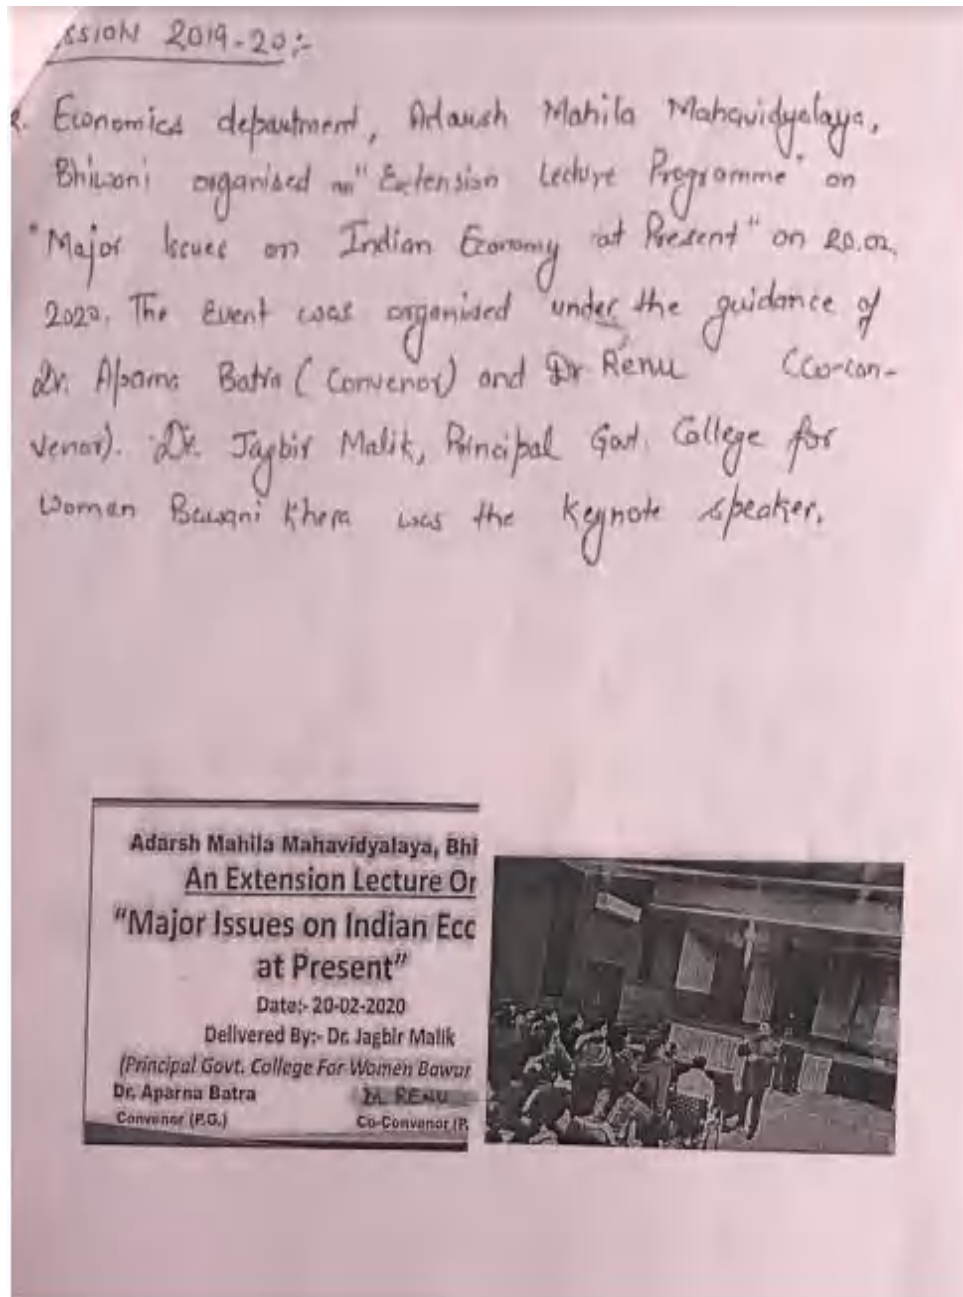 SSION 2019-20:-
2. Economics department, Adarsh Mahila Mahavidyalaya,
Bhiwani organised an "Extension Lecture Programme" on
"Major Issues on Indian Economy at Present" on 20.02.
2020. The Event was organised under the guidance of
Dr. Aparna Batra (Convenor) and Dr Renu (Co-con-
venor). Dr. Jagbir Malik, Principal Govt. College for
Woman Bawani Khera was the keynote speaker.
Adarsh Mahila Mahavidyalaya, Bhi
An Extension Lecture On
"Major Issues on Indian Ecc
at Present"
Date:- 20-02-2020
Delivered By:- Dr. Jagbir Malik
(Principal Govt. College For Women Bawan
Dr. Aparna Batra Dr. RENU
Convenor (P.G.) Co-Convenor (P.